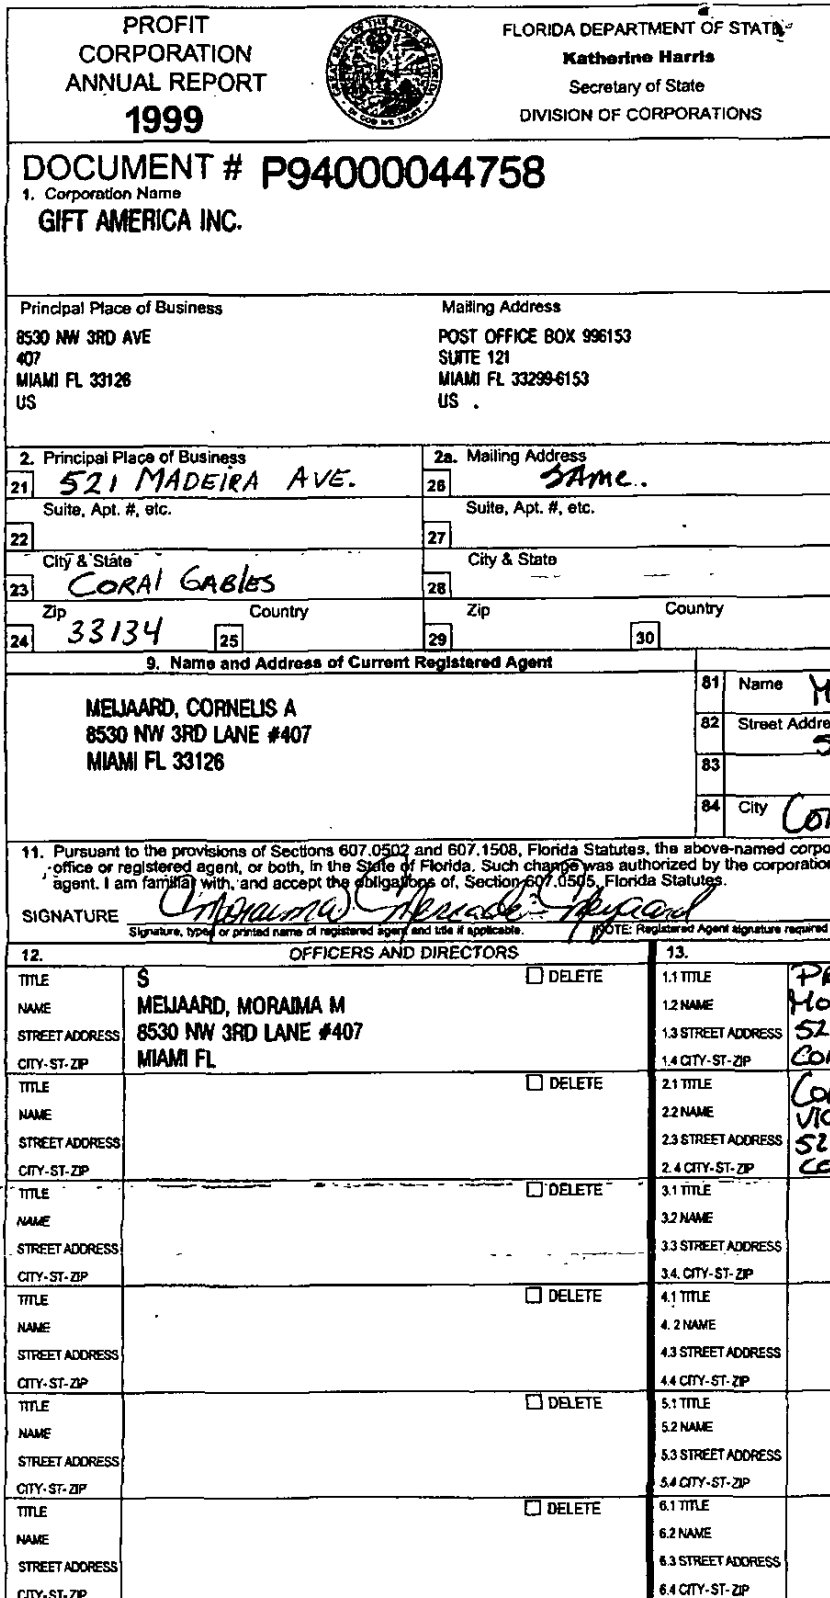 PROFIT
CORPORATION
ANNUAL REPORT
1999
GREAT SEAL OF THE STATE OF FLORIDA
IN GOD WE TRUST
FLORIDA DEPARTMENT OF STATE
Katherine Harris
Secretary of State
DIVISION OF CORPORATIONS
DOCUMENT # P94000044758
1. Corporation Name
GIFT AMERICA INC.
Principal Place of Business
8530 NW 3RD AVE
407
MIAMI FL 33126
US
Mailing Address
POST OFFICE BOX 996153
SUITE 121
MIAMI FL 33299-6153
US
2. Principal Place of Business
21 521 MADEIRA AVE.
2a. Mailing Address
26 SAME.
Suite, Apt. #, etc.
22
Suite, Apt. #, etc.
27
City & State
23 CORAl GABlES
City & State
28
Zip
24 33134
Country
25
Zip
29
Country
30
9. Name and Address of Current Registered Agent
MEIJAARD, CORNELIS A
8530 NW 3RD LANE #407
MIAMI FL 33126
81 Name M
82 Street Addre
5
83
84 City Cor
11. Pursuant to the provisions of Sections 607.0502 and 607.1508, Florida Statutes, the above-named corpo
office or registered agent, or both, in the State of Florida. Such change was authorized by the corporation
agent. I am familiar with, and accept the obligations of, Section 607.0505, Florida Statutes.
SIGNATURE Moraima Mercado-Meijaard
Signature, typed or printed name of registered agent and title if applicable. NOTE: Registered Agent signature required
12. OFFICERS AND DIRECTORS 13.
TITLE S DELETE
NAME MEIJAARD, MORAIMA M
STREET ADDRESS 8530 NW 3RD LANE #407
CITY-ST-ZIP MIAMI FL
1.1 TITLE PR
1.2 NAME Mo
1.3 STREET ADDRESS 52
1.4 CITY-ST-ZIP Cor
TITLE DELETE
NAME
STREET ADDRESS
CITY-ST-ZIP
2.1 TITLE Cor
2.2 NAME VIC
2.3 STREET ADDRESS 52
2.4 CITY-ST-ZIP Co
TITLE DELETE
NAME
STREET ADDRESS
CITY-ST-ZIP
3.1 TITLE
3.2 NAME
3.3 STREET ADDRESS
3.4. CITY-ST-ZIP
TITLE DELETE
NAME
STREET ADDRESS
CITY-ST-ZIP
4.1 TITLE
4. 2 NAME
4.3 STREET ADDRESS
4.4 CITY-ST-ZIP
TITLE DELETE
NAME
STREET ADDRESS
CITY-ST-ZIP
5.1 TITLE
5.2 NAME
5.3 STREET ADDRESS
5.4 CITY-ST-ZIP
TITLE DELETE
NAME
STREET ADDRESS
CITY-ST-ZIP
6.1 TITLE
6.2 NAME
6.3 STREET ADDRESS
6.4 CITY-ST-ZIP